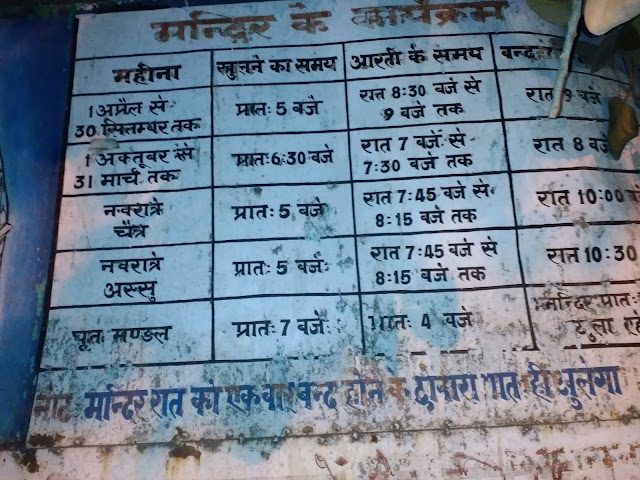 मन्दिर के कार्यक्रम
महीना खुलने का समय आरती के समय बन्द
1 अप्रैल से प्रातः 5 बजे रात 8:30 बजे से रात 9 बजे
30 सितम्बर तक 9 बजे तक
1 अक्तूबर से प्रातः 6:30 बजे रात 7 बजे से रात 8
31 मार्च तक 7:30 बजे तक
नवरात्रे प्रातः 5 बजे रात 7:45 बजे से रात 10:00
चैत्र 8:15 बजे तक
नवरात्रे प्रातः 5 बजे रात 7:45 बजे से रात 10:30
अस्सु 8:15 बजे तक
घृत मण्डल प्रातः 7 बजे प्रातः 4 बजे मन्दिर प्रातः
नोट मन्दिर रात को एक बार बन्द होने के द्वारा प्रात ही खुलेगा